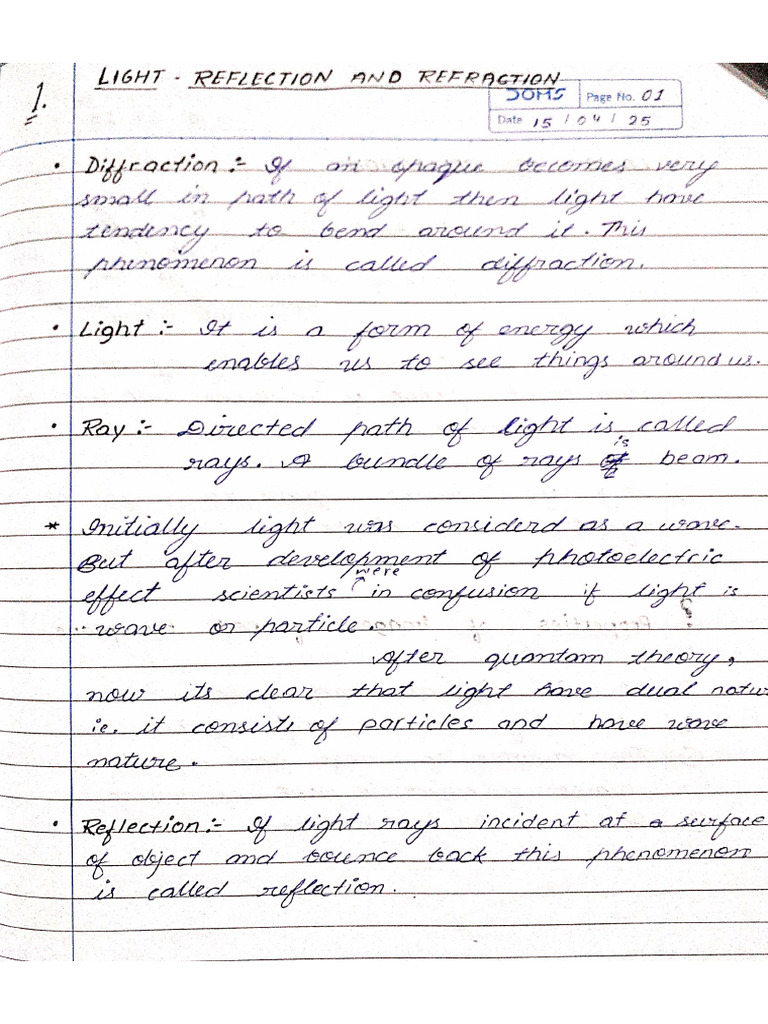 LIGHT - REFLECTION AND REFRACTION
1.
DOMS Page No. 01
Date 15 / 04 / 25
• Diffraction :- If an opaque becomes very
small in path of light then light have
tendency to bend around it. This
phenomenon is called diffraction.
• Light :- It is a form of energy which
enables us to see things around us.
• Ray :- Directed path of light is called
rays. A bundle of rays is beam.
* Initially light was considerd as a wave.
But after development of photoelectric
effect scientists were in confusion if light is
wave or particle.
After quantam theory,
now its clear that light have dual natu
ie. it consists of particles and have wave
nature.
• Reflection :- If light rays incident at a surface
of object and bounce back this phenomenon
is called reflection.